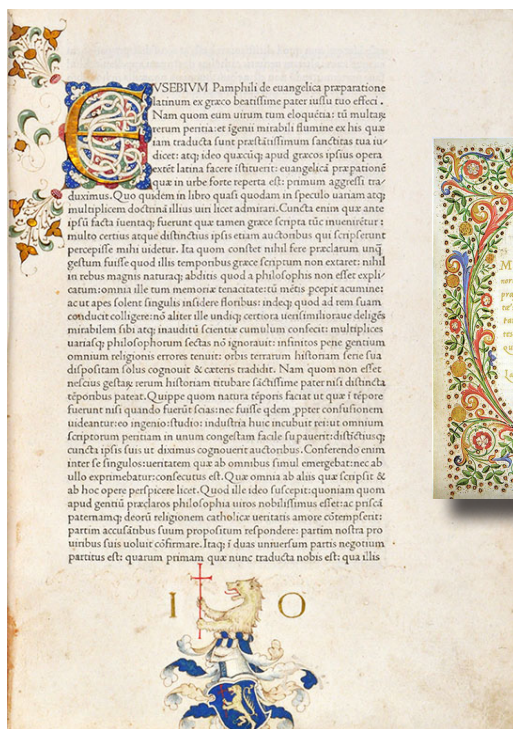 EVSEBIVM Pamphili de euangelica præparatione
latinum ex græco beatissime pater iussu tuo effeci.
Nam quom eum uirum tum eloquētia: tū multaꝝ
rerum peritia: et īgenii mirabili flumine ex his quæ
iam traducta sunt præstātissimum sanctitas tua iu/
dicet: atq; ideo quæcūq; apud græcos ipsius opera
extēt latina facere īstituerit: euangelicā præpationē
quæ in urbe forte reperta est: primum aggressi tra/
duximus. Quo quidem in libro quasi quodam in speculo uariam atq;
multiplicem doctrinā illius uiri licet admirari. Cuncta enim quæ ante
ipsū facta īuentaq; fuerunt quæ tamen græce scripta tūc inuenirētur:
multo certius atque distinctius ipsis etiam auctoribus qui scripserunt
percepisse mihi uidetur. Ita quom constet nihil fere præclarum unq̄
gestum fuisse quod illis temporibus græce scriptum non extaret: nihil
in rebus magnis naturaq; abditis quod a philosophis non esset expli/
catum: omnia ille tum memoriæ tenacitate: tū mētis pcepit acumine:
ac ut apes solent singulis insidere floribus: indeq; quod ad rem suam
conducit colligere: nō aliter ille undiq; certiora uerisimilioraue deligēs
mirabilem sibi atq; inauditū scientiæ cumulum confecit: multiplices
uariasq; philosophorum sectas nō ignorauit: infinitos pene gentium
omnium religionis errores tenuit: orbis terrarum historiam serie sua
dispositam solus cognouit & cæteris tradidit. Nam quom non esset
nescius gestaꝝ rerum historiam titubare sāctissime pater nisi distincta
tēporibus pateat. Quippe quom natura tēporis faciat ut quæ ī tēpore
fuerunt nisi quando fuerūt scias: nec fuisse qdem ppter confusionem
uideantur: eo ingenio: studio: industria huic incubuit rei: ut omnium
scriptorum peritiam in unum congestam facile supauerit: distīctiusq;
cuncta ipsis suis ut diximus cognouerit auctoribus. Conferendo enim
inter se singulos: ueritatem quæ ab omnibus simul emergebat: nec ab
ullo exprimebatur: consecutus est. Quæ omnia ab aliis quæ scripsit &
ab hoc opere perspicere licet. Quod ille ideo suscepit: quoniam quom
apud gentiū præclaros philosophia uiros nobilissimus esset: ac priscā
paternamq; deorū religionem catholicæ ueritatis amore cōtempserit:
partim accusātibus suum propositum respondere: partim nostra pro
uiribus suis uoluit cōfirmare. Itaq; ī duas uniuersum partis negotium
partitus est: quarum primam quæ nunc traducta nobis est: qua illis
I O